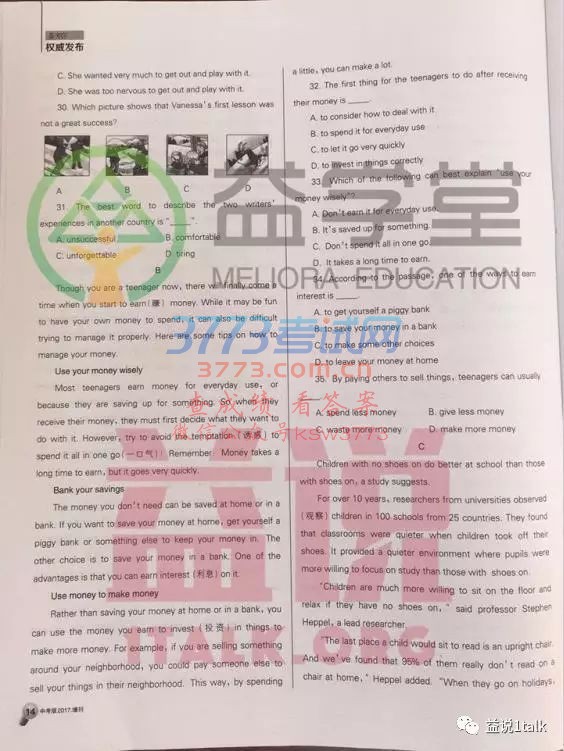 权威发布
C. She wanted very much to get out and play with it.
D. She was too nervous to get out and play with it.
30. Which picture shows that Vanessa's first lesson was
not a great success?
A B C D
31. The best word to describe the two writers'
experiences in another country is "____".
A. unsuccessful B. comfortable
C. unforgettable D. tiring
B
Though you are a teenager now, there will finally come a
time when you start to earn (赚) money. While it may be fun
to have your own money to spend, it can also be difficult
trying to manage it properly. Here are some tips on how to
manage your money.
Use your money wisely
Most teenagers earn money for everyday use, or
because they are saving up for something. So when they
receive their money, they must first decide what they want to
do with it. However, try to avoid the temptation (诱惑) to
spend it all in one go (一口气)! Remember: Money takes a
long time to earn, but it goes very quickly.
Bank your savings
The money you don't need can be saved at home or in a
bank. If you want to save your money at home, get yourself a
piggy bank or something else to keep your money in. The
other choice is to save your money in a bank. One of the
advantages is that you can earn interest (利息) on it.
Use money to make money
Rather than saving your money at home or in a bank, you
can use the money you earn to invest (投资) in things to
make more money. For example, if you are selling something
around your neighborhood, you could pay someone else to
sell your things in their neighborhood. This way, by spending
a little, you can make a lot.
32. The first thing for the teenagers to do after receiving
their money is ____.
A. to consider how to deal with it
B. to spend it for everyday use
C. to let it go very quickly
D. to invest in things correctly
33. Which of the following can best explain "use your
money wisely"?
A. Don't earn it for everyday use.
B. It's saved up for something.
C. Don't spend it all in one go.
D. It takes a long time to earn.
34. According to the passage, one of the ways to earn
interest is ____.
A. to get yourself a piggy bank
B. to save your money in a bank
C. to make some other choices
D. to leave your money at home
35. By paying others to sell things, teenagers can usually
____.
A. spend less money B. give less money
C. waste more money D. make more money
C
Children with no shoes on do better at school than those
with shoes on, a study suggests.
For over 10 years, researchers from universities observed
(观察) children in 100 schools from 25 countries. They found
that classrooms were quieter when children took off their
shoes. It provided a quieter environment where pupils were
more willing to focus on study than those with shoes on.
"Children are much more willing to sit on the floor and
relax if they have no shoes on," said professor Stephen
Heppel, a lead researcher.
"The last place a child would sit to read is an upright chair.
And we've found that 95% of them really don't read on a
chair at home," Heppel added. "When they go on holidays,
14 中考版2017.增刊
益学堂
MELIORA EDUCATION
3773考试网
3773.com.cn
查成绩 看答案
微信公众号KSW3773
益说
1TALK.ORG
益说1talk